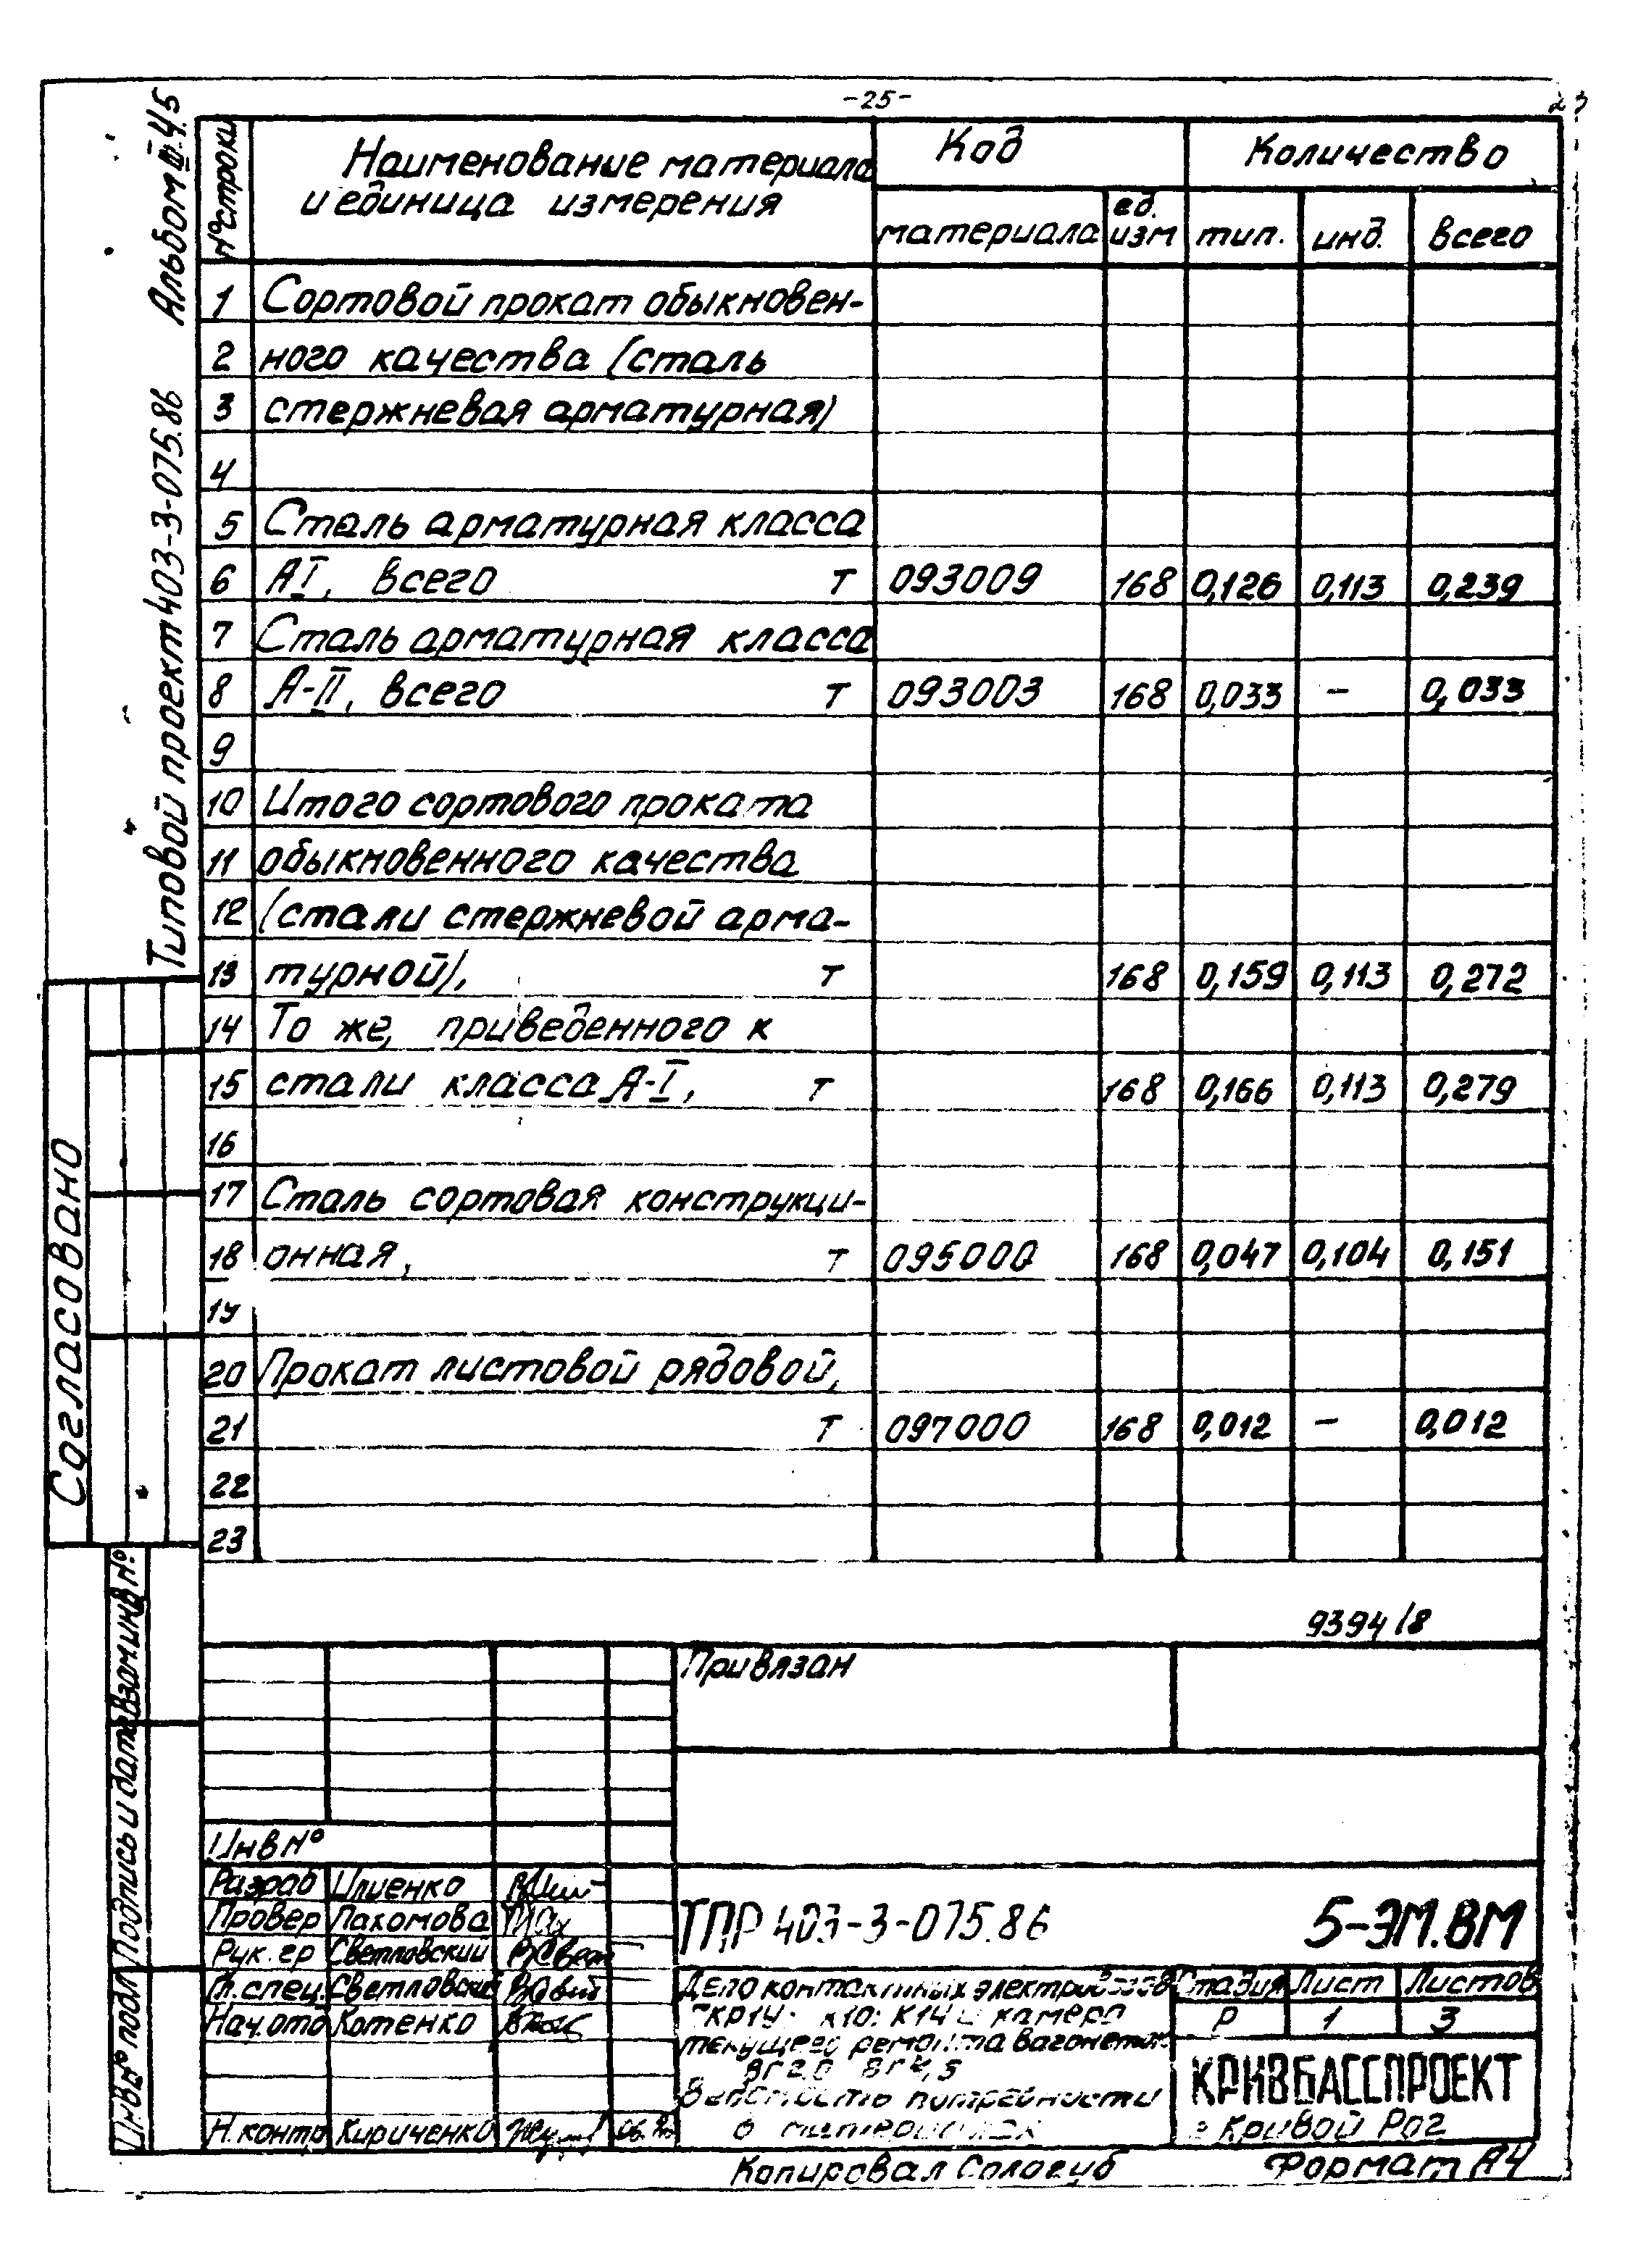 -25-
Альбом III ч.5
Типовой проект 403-3-075.86
№ строки Наименование материала и единица измерения Код Количество
материала ед. изм тип. инд. всего
1 Сортовой прокат обыкновен-
2 ного качества (сталь
3 стержневая арматурная)
4
5 Сталь арматурная класса
6 АI, всего т 093009 168 0,126 0,113 0,239
7 Сталь арматурная класса
8 А-II, всего т 093003 168 0,033 - 0,033
9
10 Итого сортового проката
11 обыкновенного качества
12 (стали стержневой арма-
13 турной), т 168 0,159 0,113 0,272
14 То же, приведенного к
15 стали класса А-I, т 168 0,166 0,113 0,279
16
17 Сталь сортовая конструкци-
18 онная, т 095000 168 0,047 0,104 0,151
19
20 Прокат листовой рядовой,
21 т 097000 168 0,012 - 0,012
22
23
Согласовано
Взам инв №
Подпись и дата
Инв № подл
9394/8
Привязан
Инв №
Разраб Илиенко
Провер Пахомова
Рук. гр Светловский
Гл. спец. Светловский
Нач. отд Котенко
Н. контр Кириченко
ТПР 403-3-075.86 5-ЭМ.ВМ
Депо контактных электровозов
К10; К14 и камера
текущего ремонта вагонеток
Ведомость потребности
в материалах
Стадия Лист Листов
Р 1 3
КРИВБАССПРОЕКТ
г Кривой Рог
Копировал Сологуб Формат А4